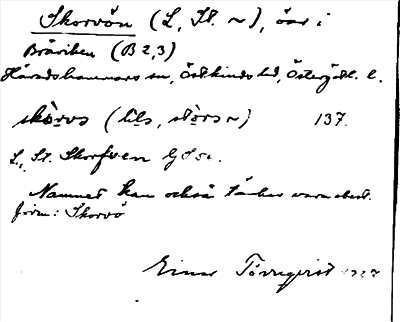 Skorvön (L, St. ~), öar i
Bråviken (B 2,3)
Häradshammars sn, Östkinds hd, Östergötl. l.
skòrvs (lils, stòrs~) 137.
L., St. Skorfven GS 50.
Namnet kan också tänkas vara obest.
form: Skorvö
Einar Törnqvist 1927